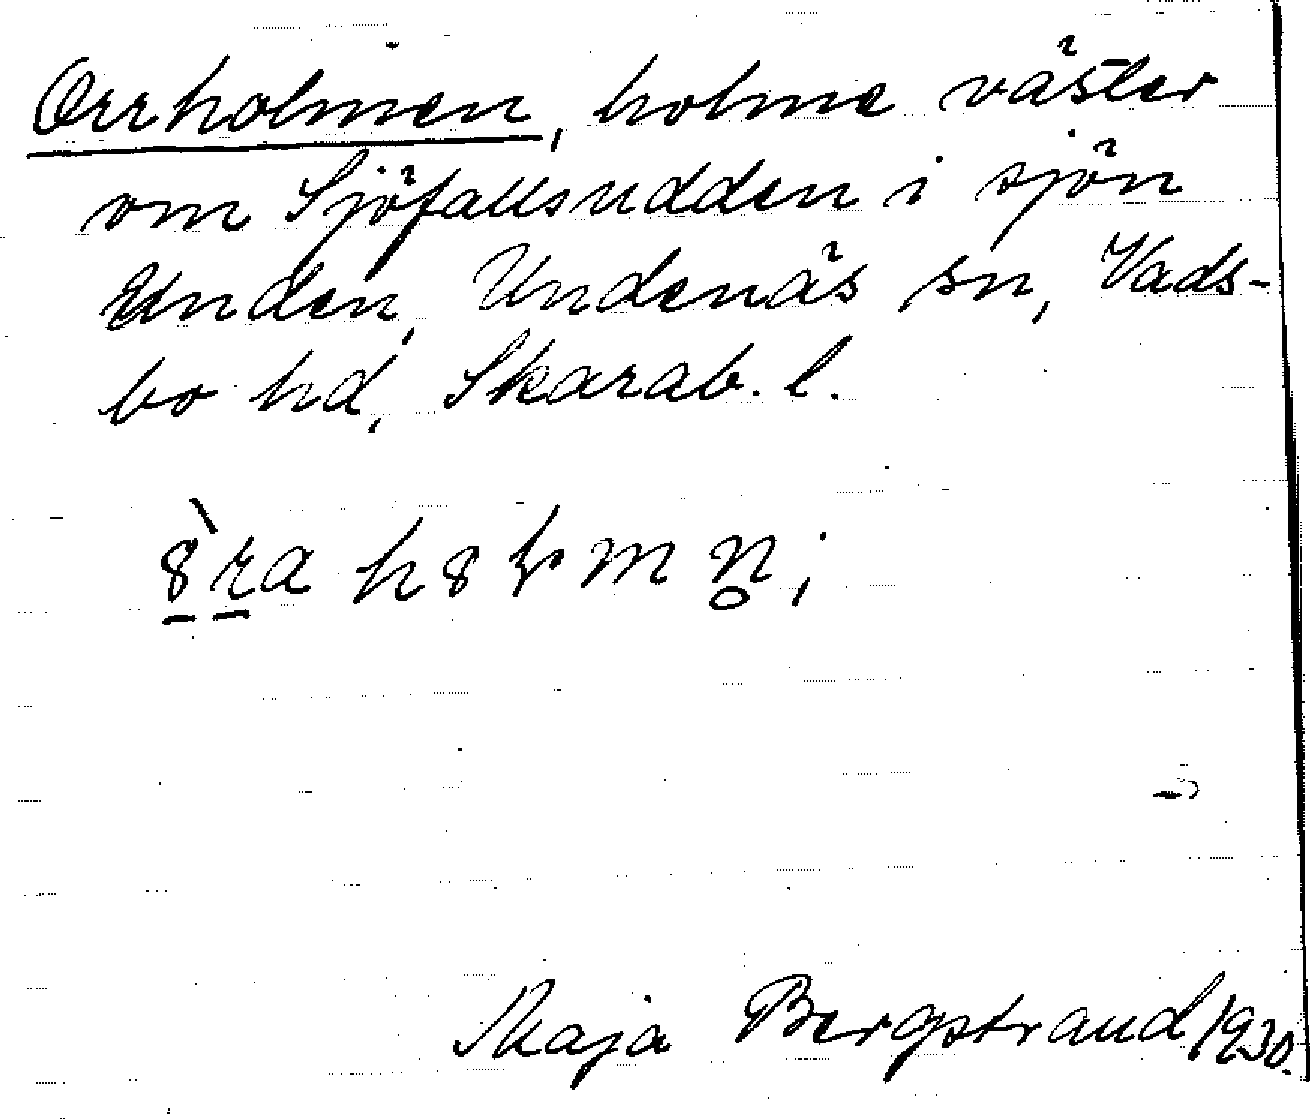 Orrholmen, holme väster
om Sjöfallsudden i sjön
Unden, Undenäs sn, Vads-
bo hd, Skarab. l.
Maja Bergstrand 1930.